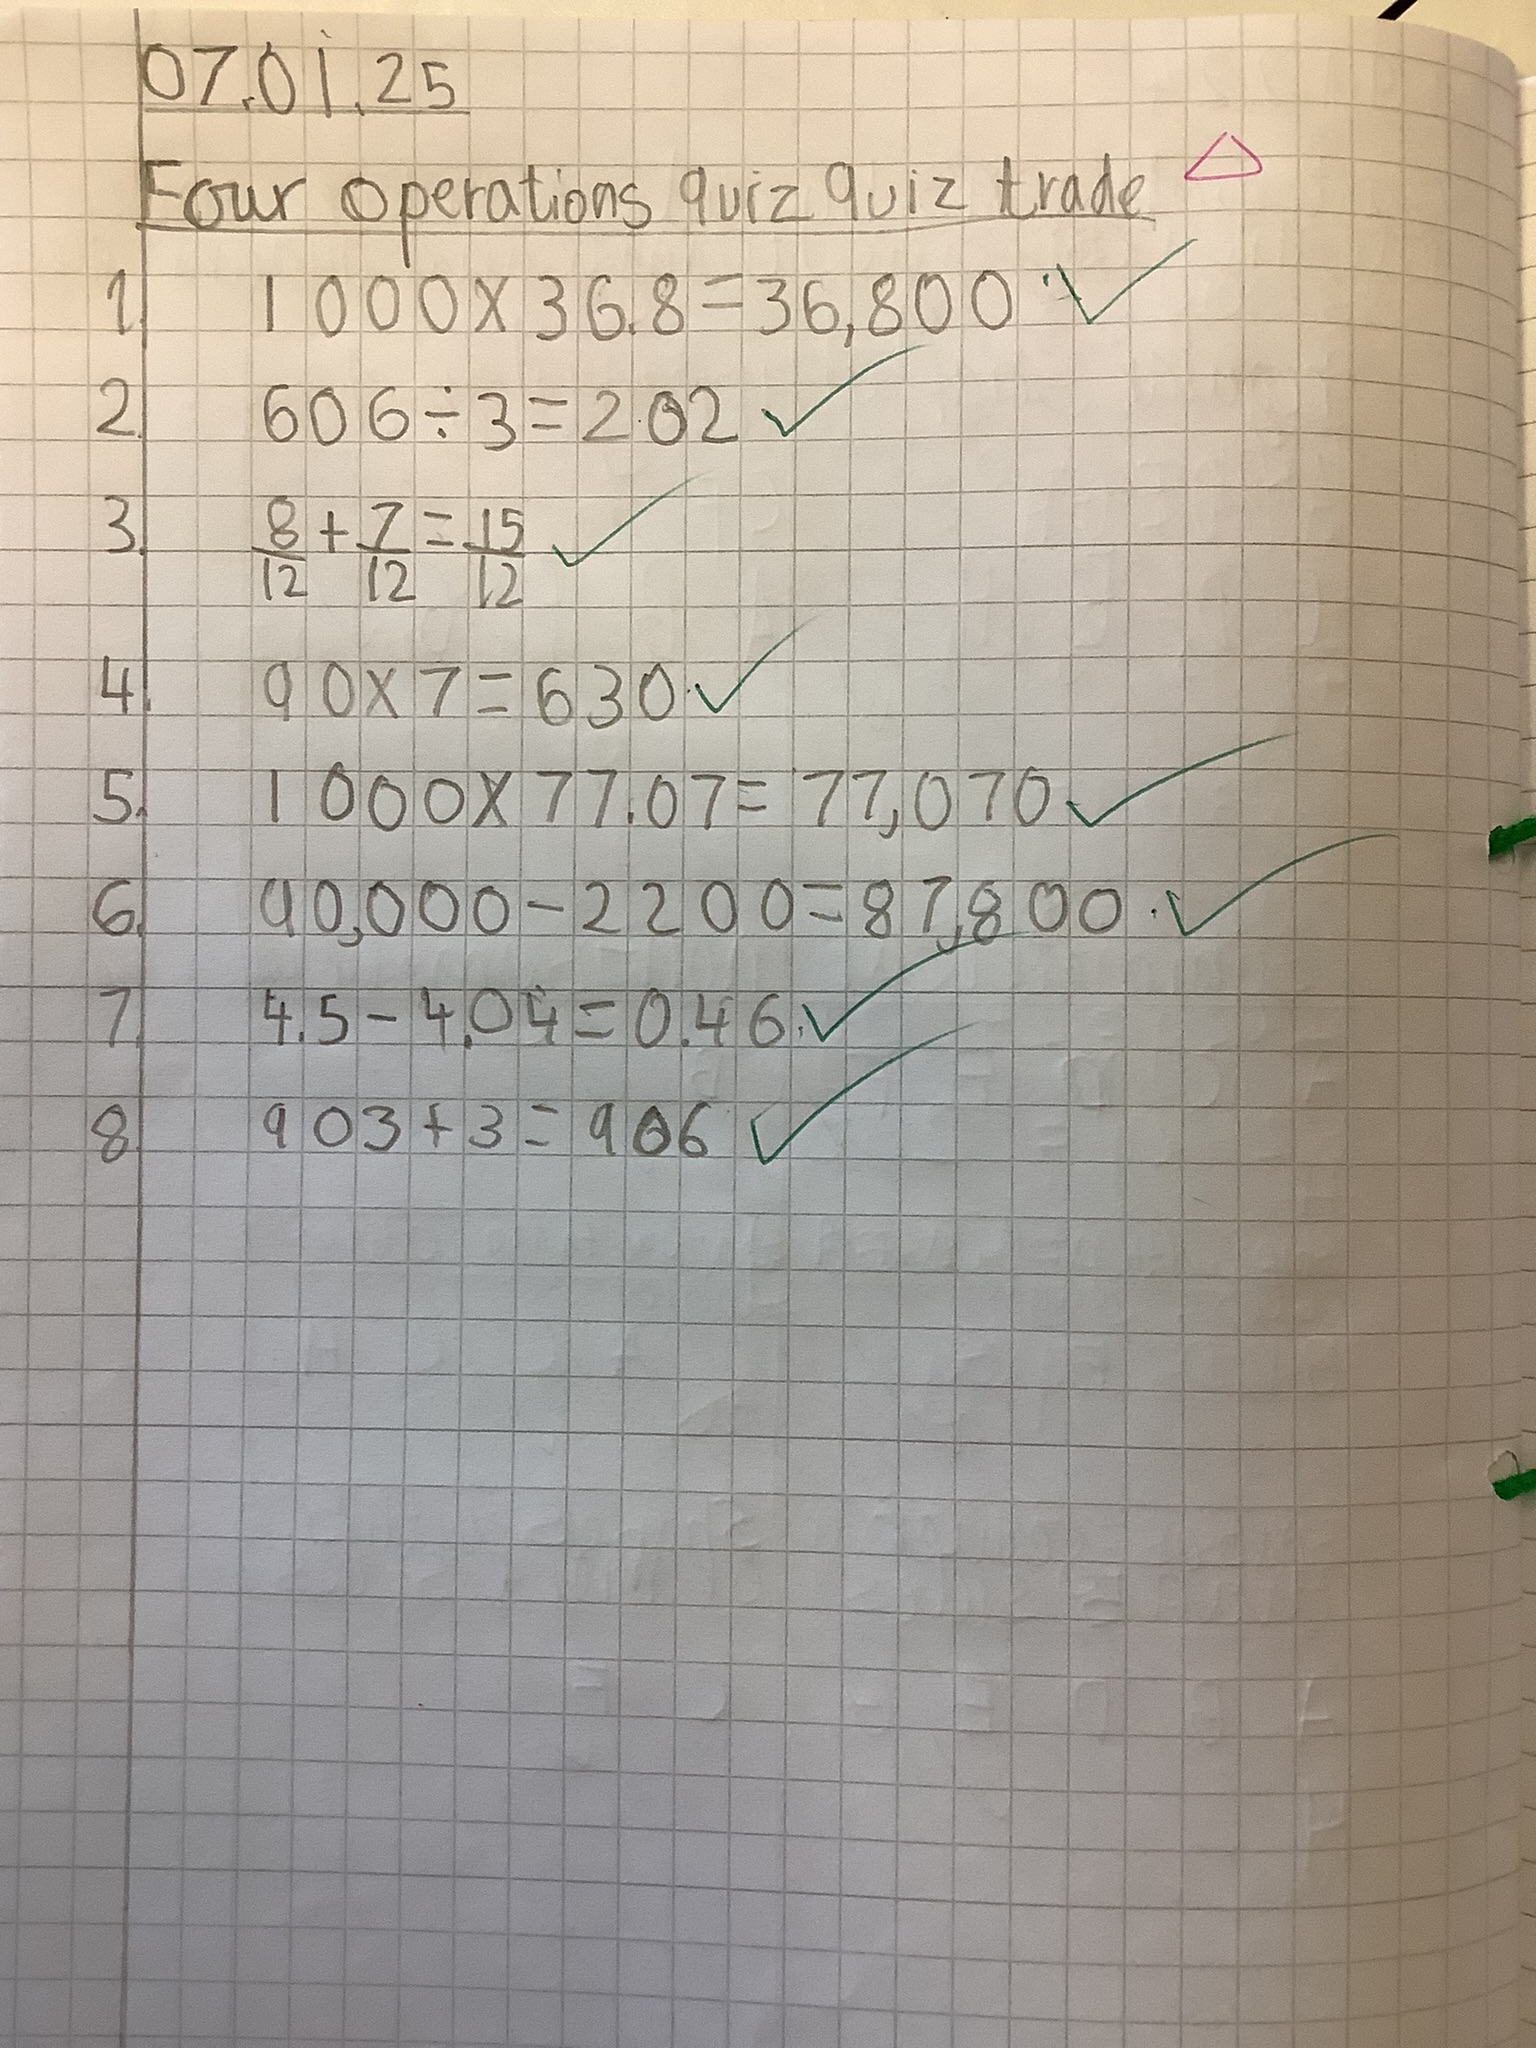 07.01.25
Four operations quiz quiz trade
1. 1000x36.8=36,800
2. 606÷3=202
3. 8/12+7/12=15/12
4. 90x7=630
5. 1000x77.07=77,070
6. 90,000-2200=87,800
7. 4.5-4.04=0.46
8. 903+3=906